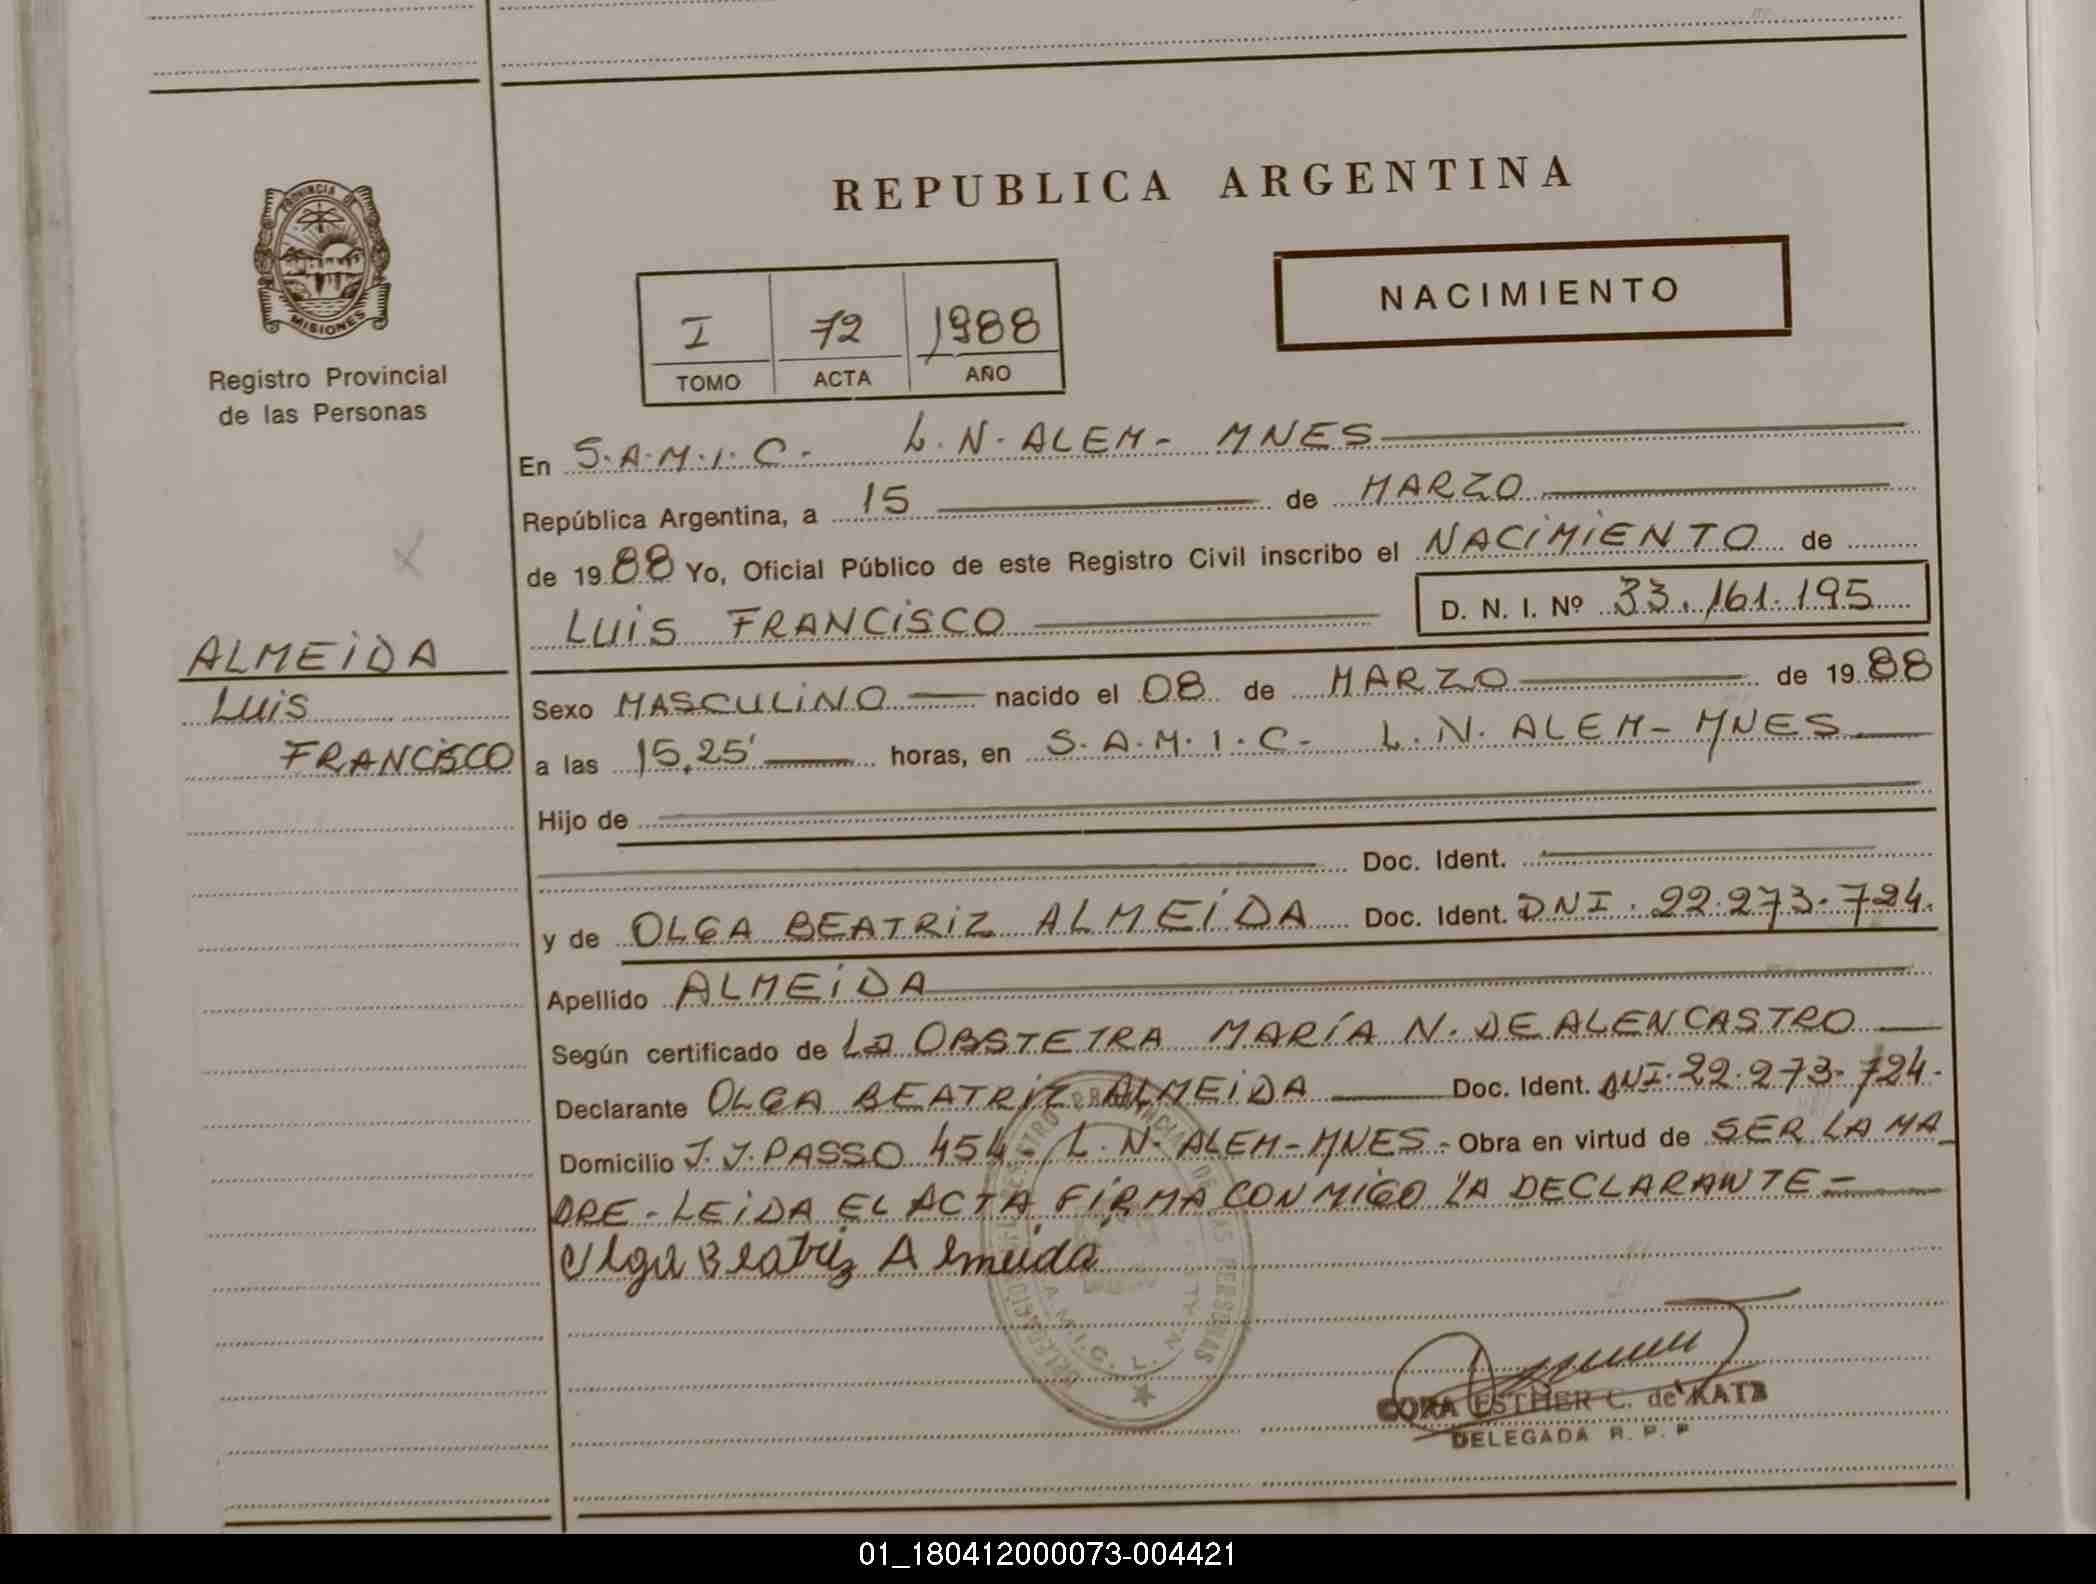 REPUBLICA ARGENTINA
PROVINCIA DE
MISIONES
Registro Provincial
de las Personas
I 72 1988
TOMO ACTA AÑO
NACIMIENTO
ALMEIDA
LUIS
FRANCISCO
En S.A.M.I.C. L.N.ALEM- MNES
República Argentina, a 15 de MARZO
de 1988 Yo, Oficial Público de este Registro Civil inscribo el NACIMIENTO de
LUIS FRANCISCO D. N. I. Nº 33.161.195
Sexo MASCULINO nacido el 08 de MARZO de 1988
a las 15,25' horas, en S.A.M.I.C- L.N. ALEM- MNES
Hijo de
Doc. Ident.
y de OLGA BEATRIZ ALMEIDA Doc. Ident. DNI. 22.273.724.
Apellido ALMEIDA
Según certificado de La OBSTETRA MARÍA N. DE ALENCASTRO
Declarante OLGA BEATRIZ ALMEIDA Doc. Ident. DNI. 22.273.724.
Domicilio J.J.PASSO 454- L.N.ALEM-MNES- Obra en virtud de SER LA MA
DRE-LEIDA EL ACTA, FIRMA CONMIGO LA DECLARANTE-
Olga Beatriz Almeida
REGISTRO PROVINCIAL DE LAS PERSONAS
CORA ESTHER C. de KATZ
DELEGADA R. P. P
01_180412000073-004421